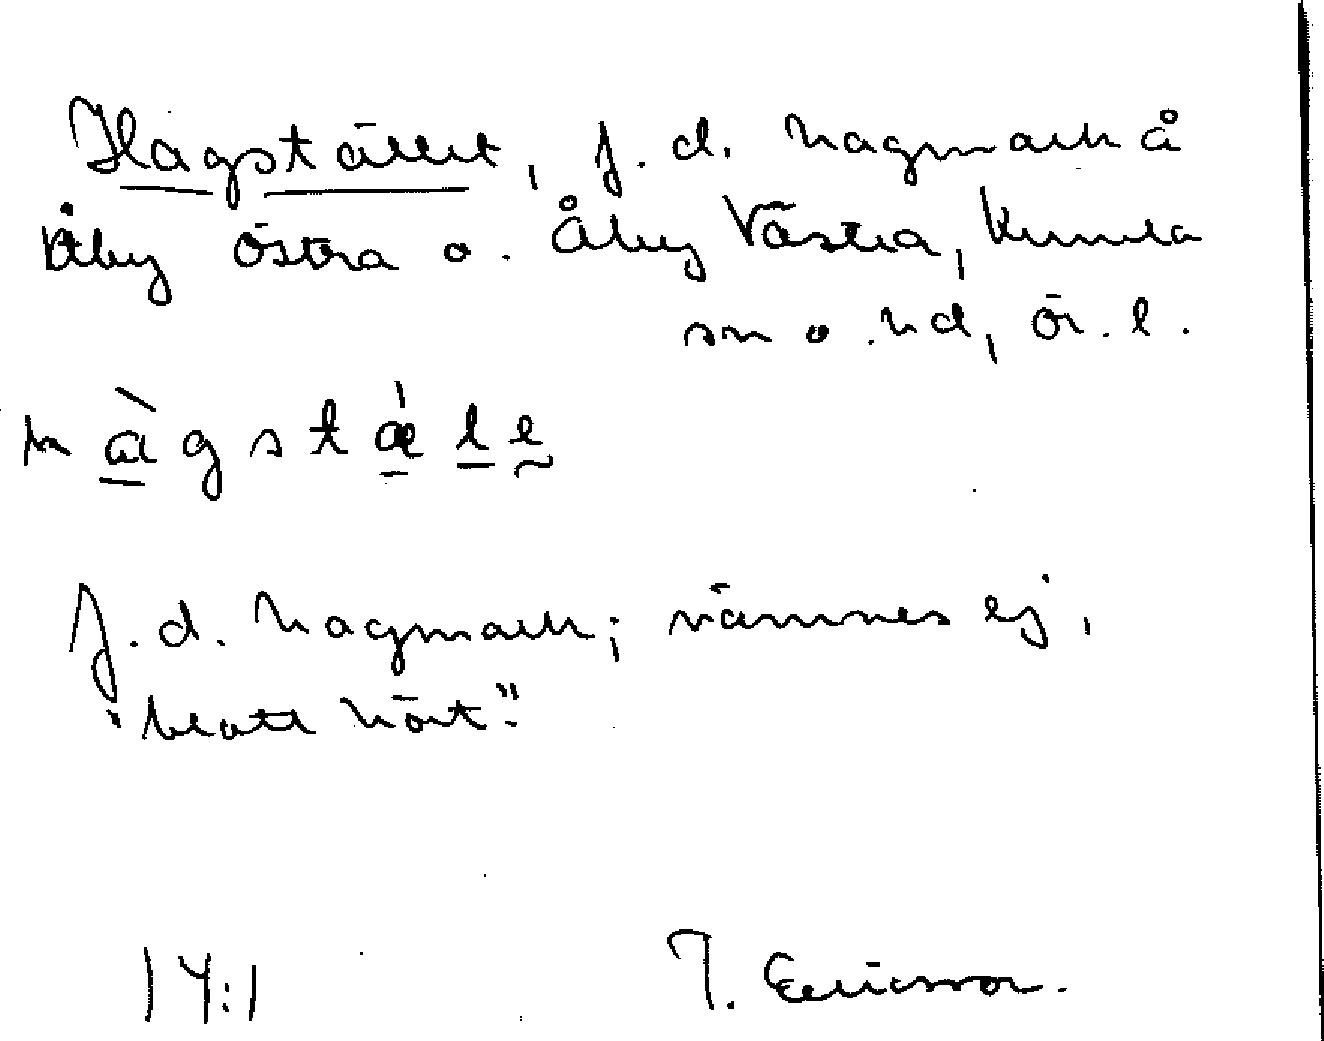 Hagstället, f.d. hagmark å
Åby Östra o. Åby Västra, Kumla
sn o. hd, Ör. l.
hàgstǽle
F.d. hagmark; nämnes ej,
"blott hört".
14:1 T. Ericsson.